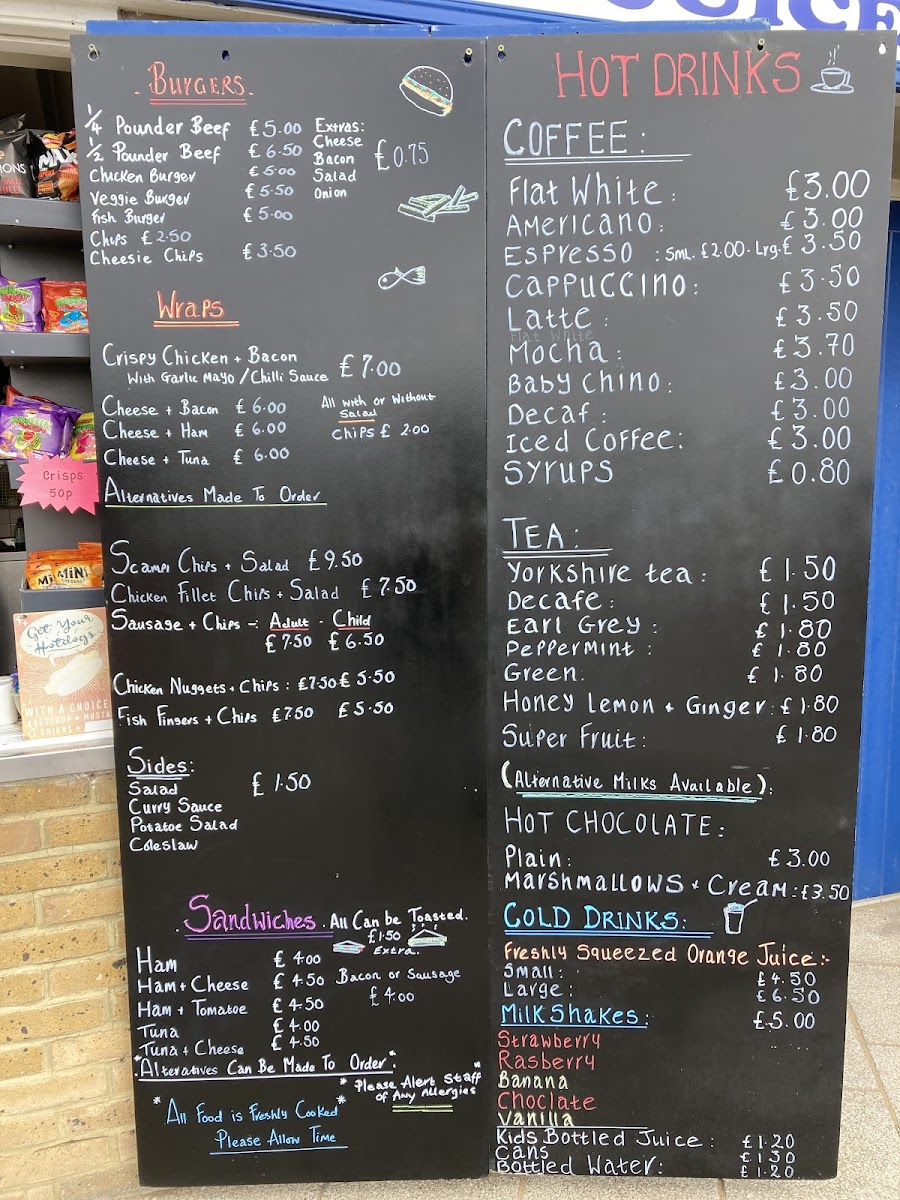 UICE
BURGERS
1/4 Pounder Beef £5.00
1/2 Pounder Beef £6.50
Chicken Burger £5.00
Veggie Burger £5.50
Fish Burger £5.00
Chips £2.50
Cheesie Chips £3.50
Extras:
Cheese
Bacon £0.75
Salad
Onion
Wraps
Crispy Chicken + Bacon £7.00
With Garlic Mayo/Chilli Sauce
Cheese + Bacon £6.00
Cheese + Ham £6.00
Cheese + Tuna £6.00
All with or Without
Salad
Chips £2.00
Alternatives Made To Order
Scampi Chips + Salad £9.50
Chicken Fillet Chips + Salad £7.50
Sausage + Chips -: Adult - Child
£7.50 £6.50
Chicken Nuggets + Chips: £7.50 £5.50
Fish Fingers + Chips £7.50 £5.50
Sides:
Salad £1.50
Curry Sauce
Potatoe Salad
Coleslaw
Sandwiches. All Can be Toasted.
£1.50
Extra.
Ham £4.00
Ham + Cheese £4.50
Ham + Tomatoe £4.50
Tuna £4.00
Tuna + Cheese £4.50
Bacon or Sausage
£4.00
"Alteratives Can Be Made To Order".
"Please Alert Staff
of Any Allergies"
"All Food is Freshly Cooked"
Please Allow Time
HOT DRINKS
COFFEE:
Flat White: £3.00
Americano: £3.00
Espresso: Sml. £2.00. Lrg. £3.50
Cappuccino: £3.50
Latte: £3.50
Flat White
Mocha: £3.70
Baby Chino: £3.00
Decaf: £3.00
Iced Coffee: £3.00
Syrups £0.80
TEA:
Yorkshire tea: £1.50
Decafe: £1.50
Earl Grey: £1.80
Peppermint: £1.80
Green. £1.80
Honey Lemon + Ginger: £1.80
Super Fruit: £1.80
(Alternative Milks Available):
HOT CHOCOLATE:
Plain: £3.00
Marshmallows + Cream: £3.50
COLD DRINKS:
Freshly Squeezed Orange Juice:-
Small: £4.50
Large: £6.50
MilkShakes: £5.00
Strawberry
Rasberry
Banana
Choclate
Vanilla
Kids Bottled Juice: £1.20
Cans £1.30
Bottled Water: £1.20
MAX
Crisps
50p
MiNi
Get Your
Hotdogs
WITH A CHOICE
KETCHUP + MUSTA
ONIONS